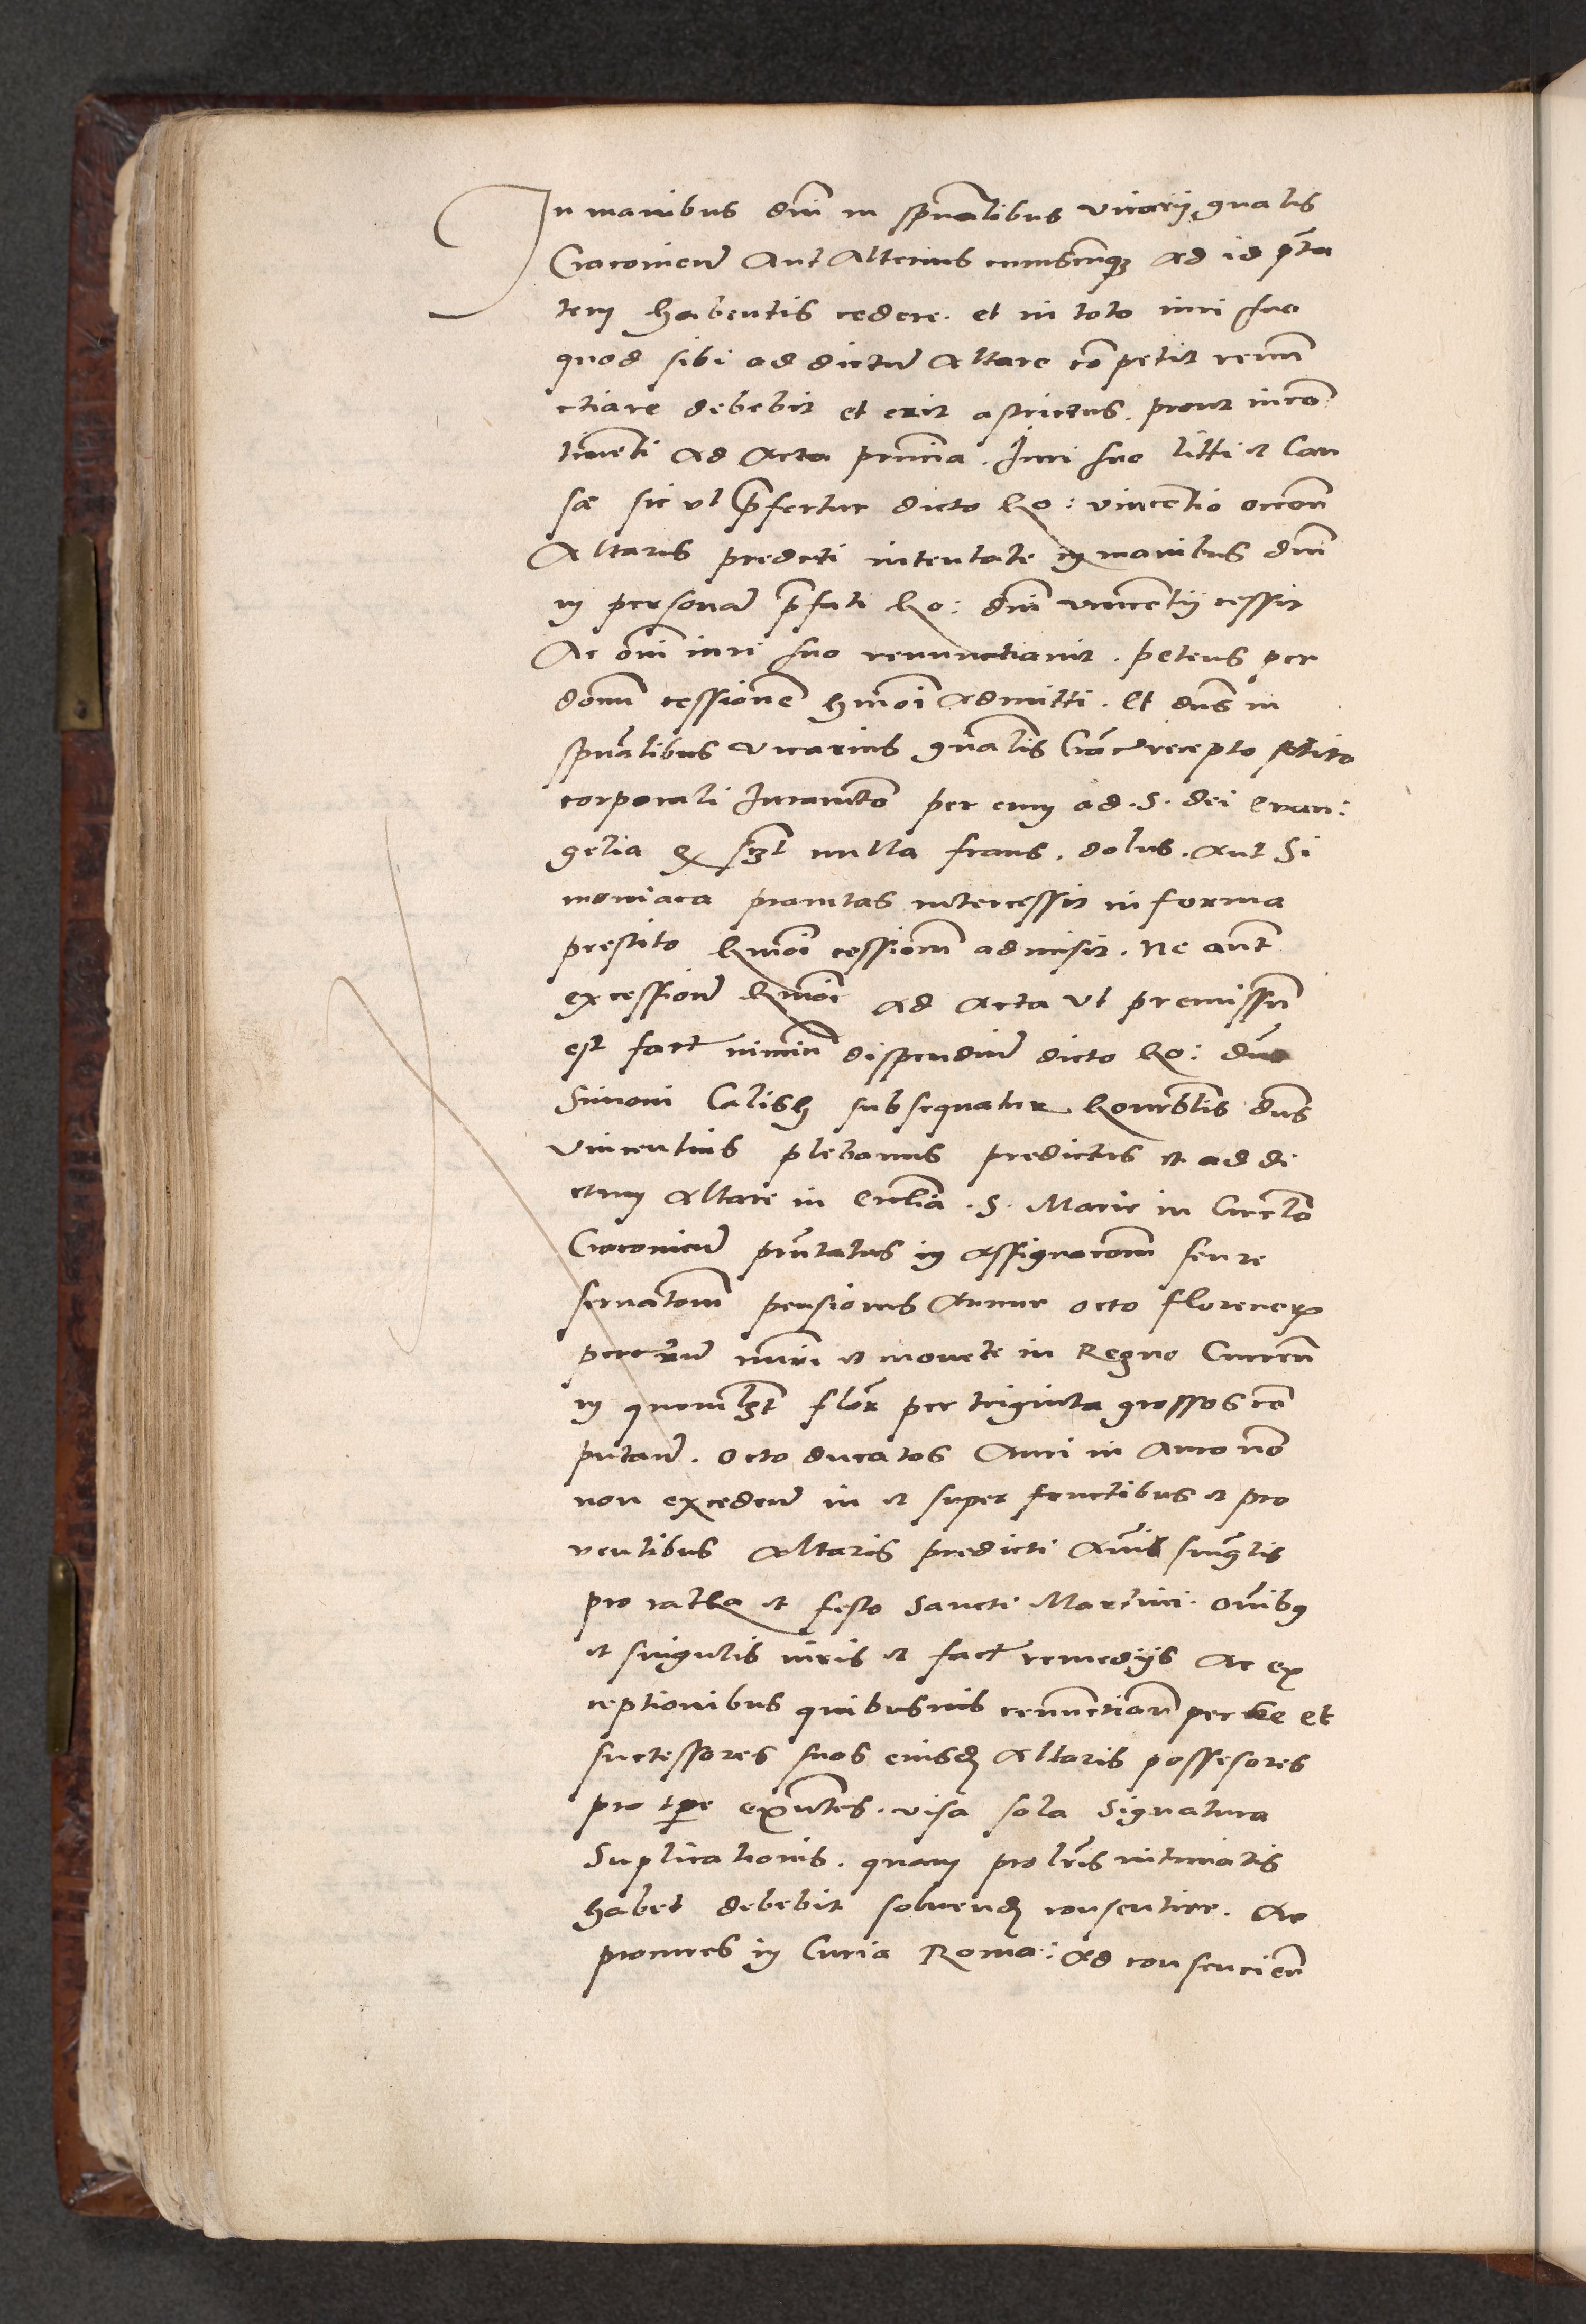 In manibus dnī in spūalibus vicarij gnalis
Cracovieñ Aut Alterius cuiuscunqʒ ad id pt̄a
tem habentis cedere. et in toto iuri suo
quod sibi ad dictū Altare cōpetit renun
ctiare debebit et erit astrictus. prout incon
tinenti ad Acta prñcia. Iuri suo litti et Cau
sæ sic vt p̄fertur dicto ho: vincentio occoñ
Altaris predicti intentate in manibus dnī
in personā p̄fati ho: dnī vincentij cessit
Ac omī iuri suo renunctiavit. petens per
domū cessionē hmōi admitti. Et dns in
spūalibus vicarius gnalis Crac̄ recepto solito
corporali Iuramēto per eum ad. S. dei evan:
gelia q̄ scʒt nulla fraus. dolus. aut Si
moniaca pravitas intercessit in forma
prestito hmōi cessionem admisit. Ne aut̄
ex cessionē hmōi ad acta vt premissū
est fact̄ nimiū dispendiū dicto ho: dno
Simoni Calish subsequatur honorblis dns
vincentius plebanus predictus et ad di
ctum altare in Ecclīa. S. Marie in Circlo
Cracovieñ pñtatus in assignacōm seu re
servatōm pensionis Annue octo florenorꝝ
pecc̄arū nūri et monete in Regno Curreñ
in quoruml3t flor̄ per triginta grossos co
putañ. octo ducatos Auri in Auro nō
non excedeñ in et super fructibus et pro
ventibus altaris predicti Annis singulis
pro ratha et festo Sancti Martini. omibꝯ
et singulis iuris et fact̄ remedijs ac ex
ceptionibus quibusvis renunctiañ per se et
successores suos eiusdē altaris possesores
pro tpe exñtes. visa sola Signatura
Suplicationis. quam pro lrīs intimatis
habet debebit solvendā consentire. ac
procures in Curia Roma: ad conscencieñ